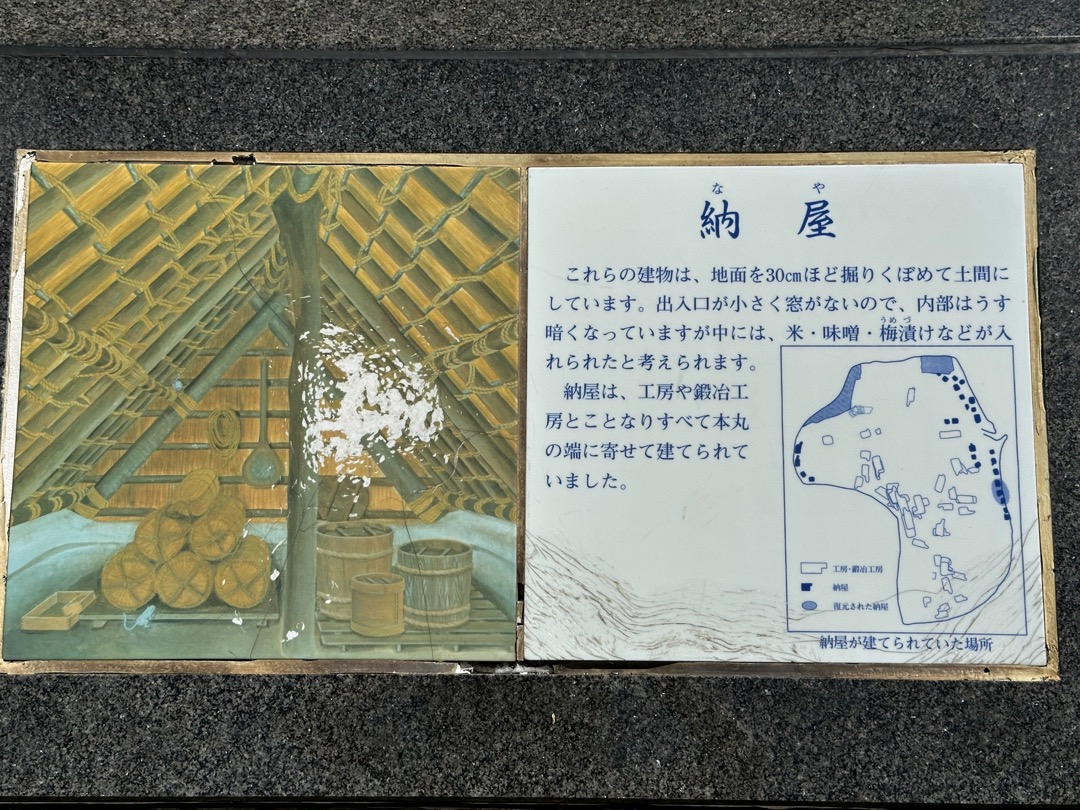 なや
納屋
これらの建物は、地面を30cmほど掘りくぼめて土間に
しています。出入口が小さく窓がないので、内部はうす
うめづ
暗くなっていますが中には、米・味噌・梅漬けなどが入
れられたと考えられます。
納屋は、工房や鍛冶工
房とことなりすべて本丸
の端に寄せて建てられて
いました。
工房・鍛冶工房
納屋
復元された納屋
納屋が建てられていた場所